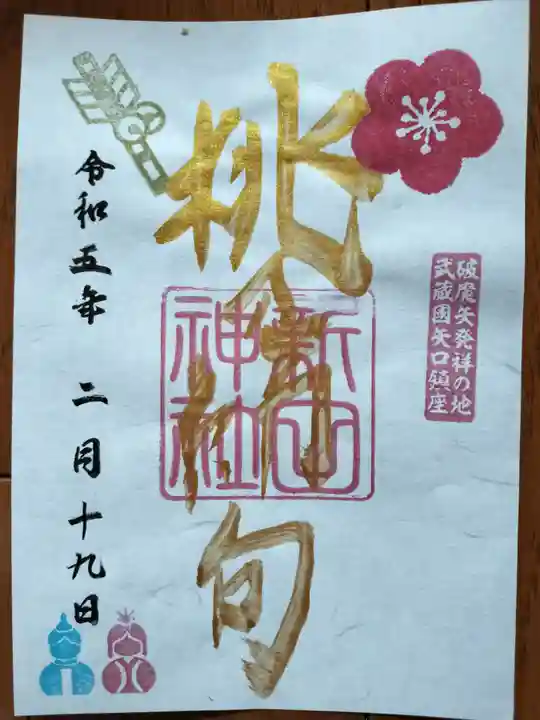 破魔矢発祥の地
武蔵國矢口鎮座
桃の節句
新田神社
令和五年 二月十九日